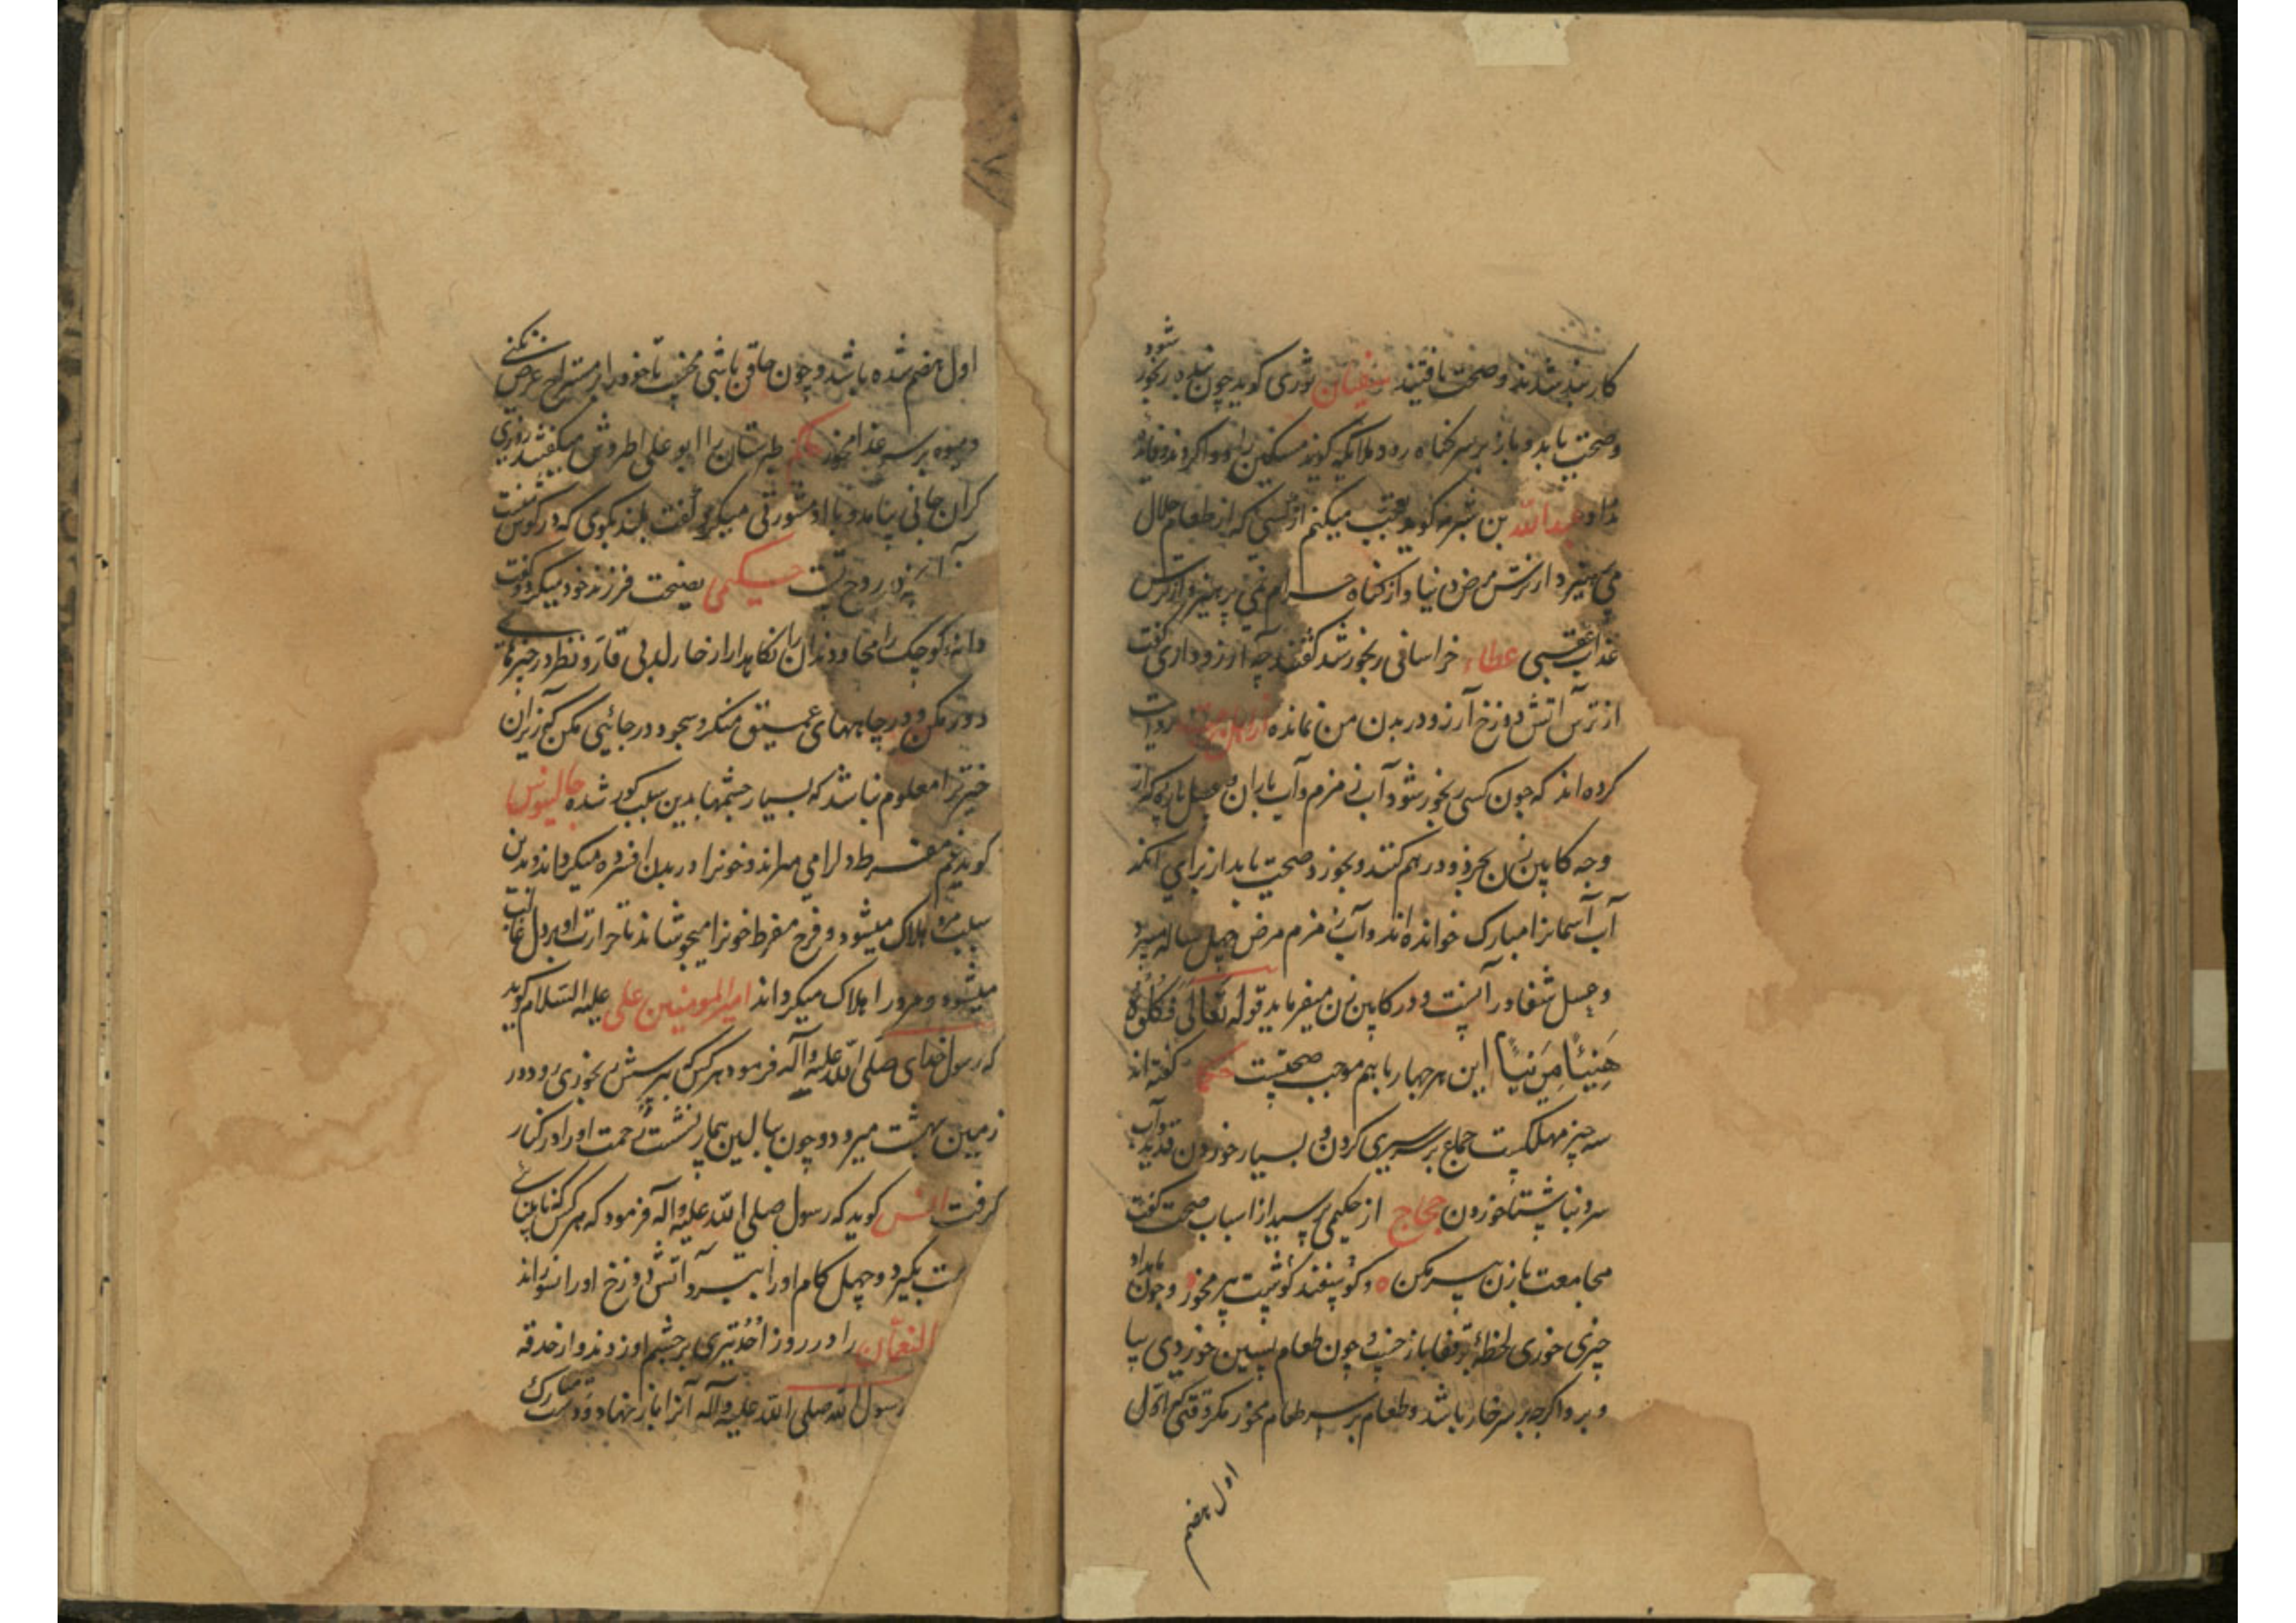 کار بند شدند و صحت یافتند سفیان ثوری کوید چون بنده رنجور شود
و صحت یابد و باز بر سر کناه رود ملائکه کویند مسکین را دوا کردند و فائده
نداد عبدالله بن شبرمه کوید تعجب میکنم از کسی که از طعام حلال
می پرهیزد از ترس مرض دنیا و از کناه حرام نمی پرهیزد از ترس
عذاب عقبی عطاء خراسانی رنجور شد کفتند چه آرزو داری کفت
از ترس آتش دوزخ آرزو در بدن من نمانده روایت
کرده اند که چون کسی رنجور شود آب زمزم و آب باران و عسل تازه که از
وجه کابین زن بخرد و در هم کند و بخورد صحت یابد از برای آنکه
آب آسمانرا مبارک خوانده اند و آب زمزم مرض چهل ساله میبرد
و عسل شفا در آنست و در کابین زن میفرماید قوله تعالی فکلوه
هنیئا مریئا این هر چهار با هم موجب صحتست حکما کفته اند
سه چیز مهلکست جماع بر سر سیری کردن و بسیار خوردن قدید و آب
سرد بناشتا خوردن حجاج از حکیمی پرسید از اسباب صحت کفت
مجامعت با زن پیر مکن و کوسپند کوشت پیر مخور و چون بامداد
چیزی خوری لحظهٔ بر قفا باز خسپ و چون طعام پسین خوردی بپا
و برو اکر چه بر سر خار باشد و طعام بر سر طعام مخور مکر وقتی که اول
اول هضم
اول هضم شده باشد و چون حاقن باشی مخسپ تا خود را از مستراح عرض نکنی
و میوه بر سر غذا مخور حاکم طبرستان را ابو علی اطروش میکفتند روزی
کران جانی بیامد و با او مشورتی میکرد کفت بلند بکوی که در کوش
روح حکیمی نصیحت فرزند خود میکرد و کفت
دانهٔ کوچک را مخا و دندان را نکاهدار از خار لدبی قار و نظر در چیزهای
دور مکن و در چاههای عمیق منکر و سجود در جائی مکن که زیر آن
خبر ترا معلوم نباشد که بسیار چشمها بدین سبب کور شده جالینوس
کوید غم مفرط دل را می میراند و خونرا در بدن افسرده میکرداند و بدین
سبب مرد هلاک میشود و فرح مفرط خونرا میجوشاند تا حرارت او بر دل غالب
میشود و مرد را هلاک میکرداند امیرالمومنین علی علیه السلام کوید
که رسول خدای صلی الله علیه و آله فرمود هر کس که بپرسش رنجوری رود در
زمین بهشت میرود و چون ببالین بیمار نشست رحمت او را در کنار
کرفت انس کوید که رسول صلی الله علیه و آله فرمود که هر کس که نابینائی
دست بکیرد و چهل کام او را ببرد آتش دوزخ او را نسوزاند
النعمان را در روز احد تیری بر چشم او زدند و از حدقه
رسول الله صلی الله علیه و آله آنرا باز نهاد و دست مبارک